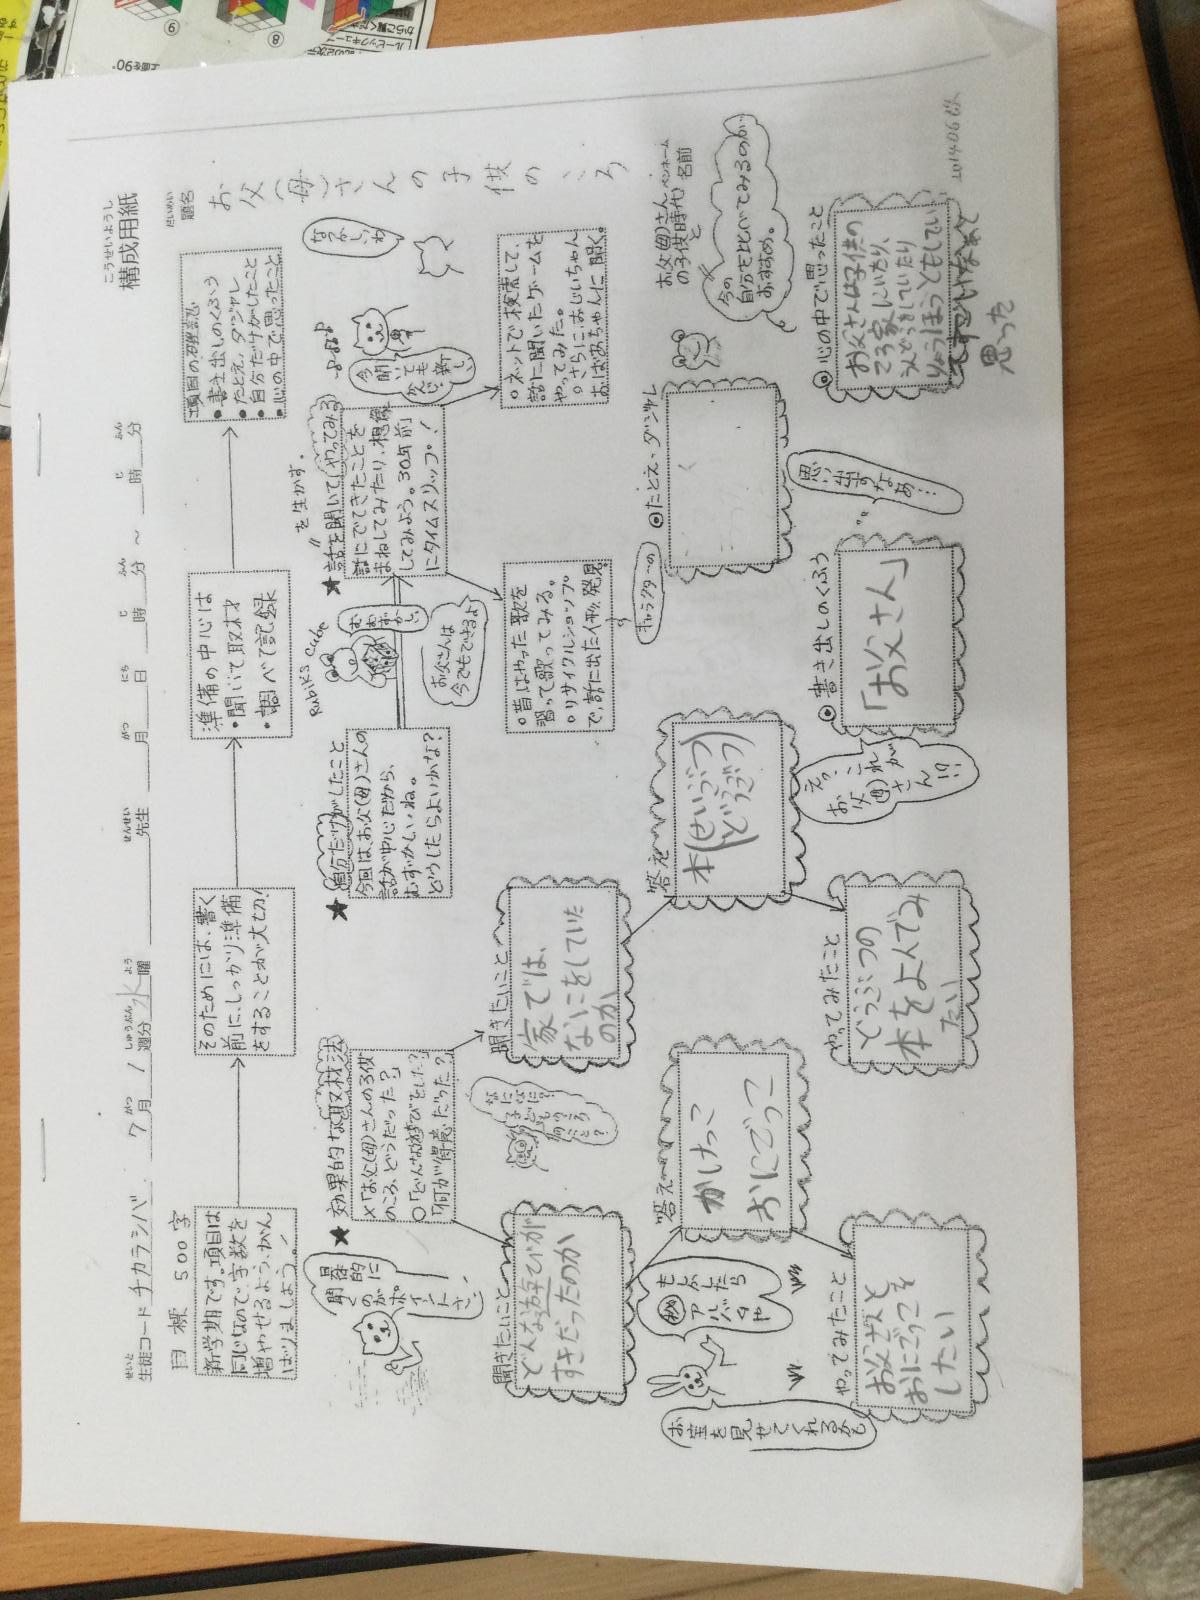 構成用紙
こうせいようし
生徒コード チカラシバ 7月 1週分 水曜 先生 月 日 時 分 ~ 時 分
せいと がつ しゅうぶん よう せんせい がつ にち じ ふん じ ふん
題名
だいめい
お父(母)さんの子供のころ
目標 500字
新学期です。項目は
同じなので、字数を
増やせるよう、がん
ばりましょう!
そのためには、書く
前に、しっかり準備
をすることが大切!
準備の中心は
・聞いて取材
・調べて記録
項目の確認
・書き出しのくふう
・たとえ、ダジャレ
・自分だけがしたこと
・心の中で思ったこと
★効果的な取材法
×「お父(母)さんの子供
のころ、どうだった?」
○「どんな遊びをした?」
「何が得意だった?」
具体的に
聞くのが
ポイントさ!
★自分だけがしたこと
今回は、お父(母)さんの
話が中心だから、
むずかしいね。
どうしたらよいかな?
Rubik's Cube
むずかしい
お父さんは
今でもできるよ
★"話を聞いて(やってみる)"を生かす。
話にでてきたことを
まねしてみたり、想像
してみよう。30年前
にタイムスリップ!
なつかしいわ
○昔はやった歌を
習って歌ってみる。
○リサイクルショップ
で、話に出た人形発見。
キャラクターの
○ネットで検索して、
話に聞いたゲームを
やってみた。
○さらに、おじいちゃん
おばあちゃんに聞く。
お父(母)さん
の子供時代
と
今の
自分を比べてみるのが
おすすめ。
ペンネーム
名前
聞きたいこと
どんな遊びが
すきだったのか
聞きたいこと
家では、
なにをしていた
のか
答え
かけっこ
おにごっこ
答え
本(せいぶつ
どうぶつ)
もしかしたら
㊙アルバムや
お宝を見せてくれるかも
やってみたこと
お父さんと
おにごっこを
したい
やってみたこと
どうぶつの
本をよんでみ
たい
えっ、これが
お父(母)さん!?
◎書き出しのくふう
「お父さん」
思い出すなあ…
◎たとえ・ダジャレ
◎心の中で思ったこと
お父さんは子供の
ころ家にいたり、
うんどうをしていたり
りょうほうともしてい
思った